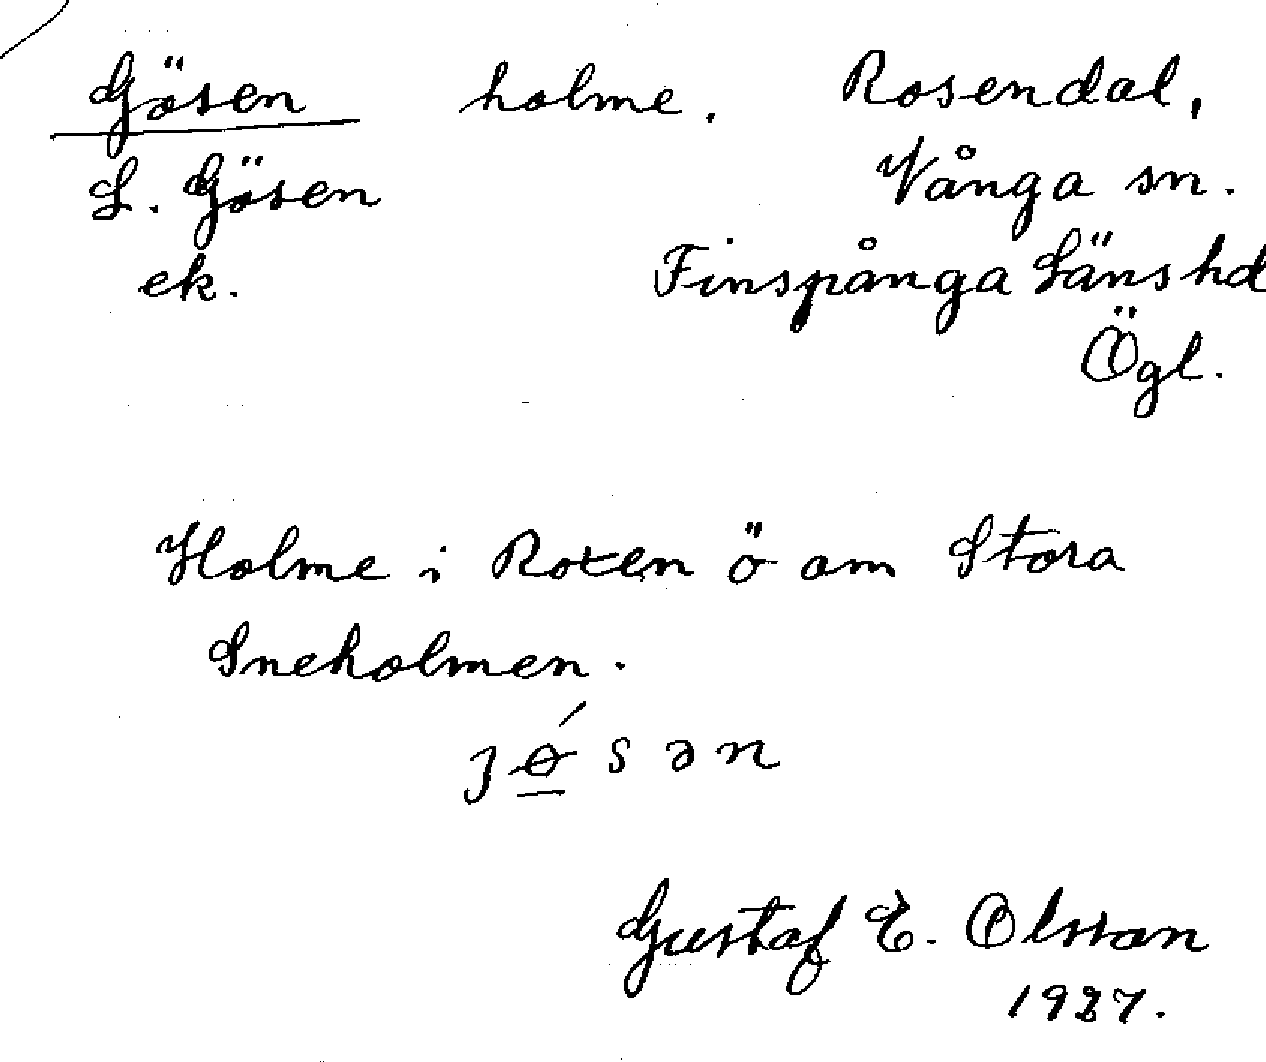 Gösen holme. Rosendal,
L. Gösen Vånga sn.
ek. Finspånga Länshd
Ögl.
Holme i Roxen ö om Stora
Sneholmen.
ȷǿsən
Gustaf E. Olsson
1927.